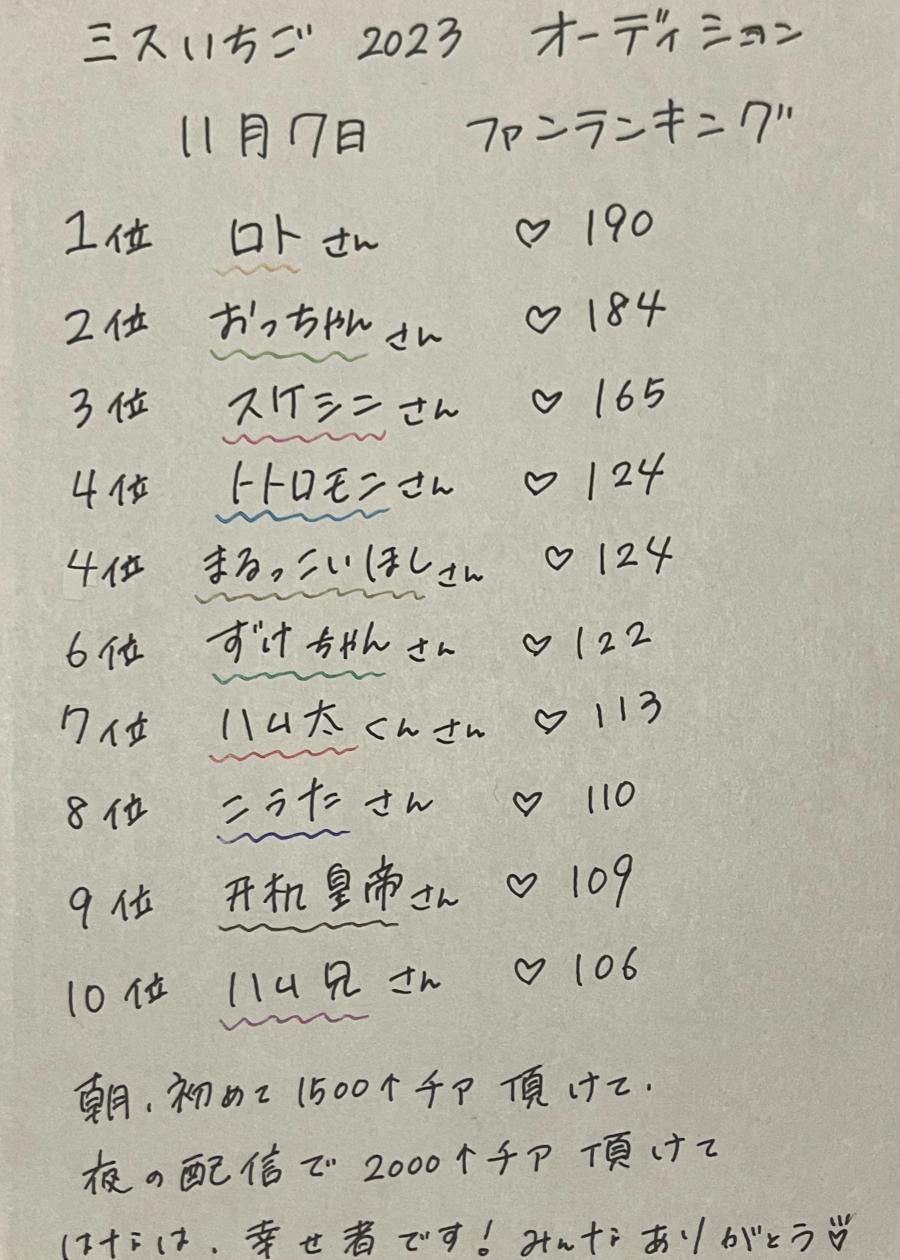 ミスいちご 2023 オーディション
11月7日 ファンランキング
1位 ロトさん ♡ 190
2位 おっちゃんさん ♡ 184
3位 スケシンさん ♡ 165
4位 トトロモンさん ♡ 124
4位 まるっこいほしさん ♡ 124
6位 ずけちゃんさん ♡ 122
7位 ハム太くんさん ♡ 113
8位 こうたさん ♡ 110
9位 开机皇帝さん ♡ 109
10位 ハム兄さん ♡ 106
朝、初めて1500↑チア頂けて、
夜の配信で2000↑チア頂けて
はなは、幸せ者です！みんなありがとう♡